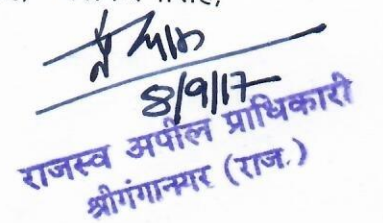 8/9/17
राजस्व अपील प्राधिकारी
श्रीगंगानगर (राज.)